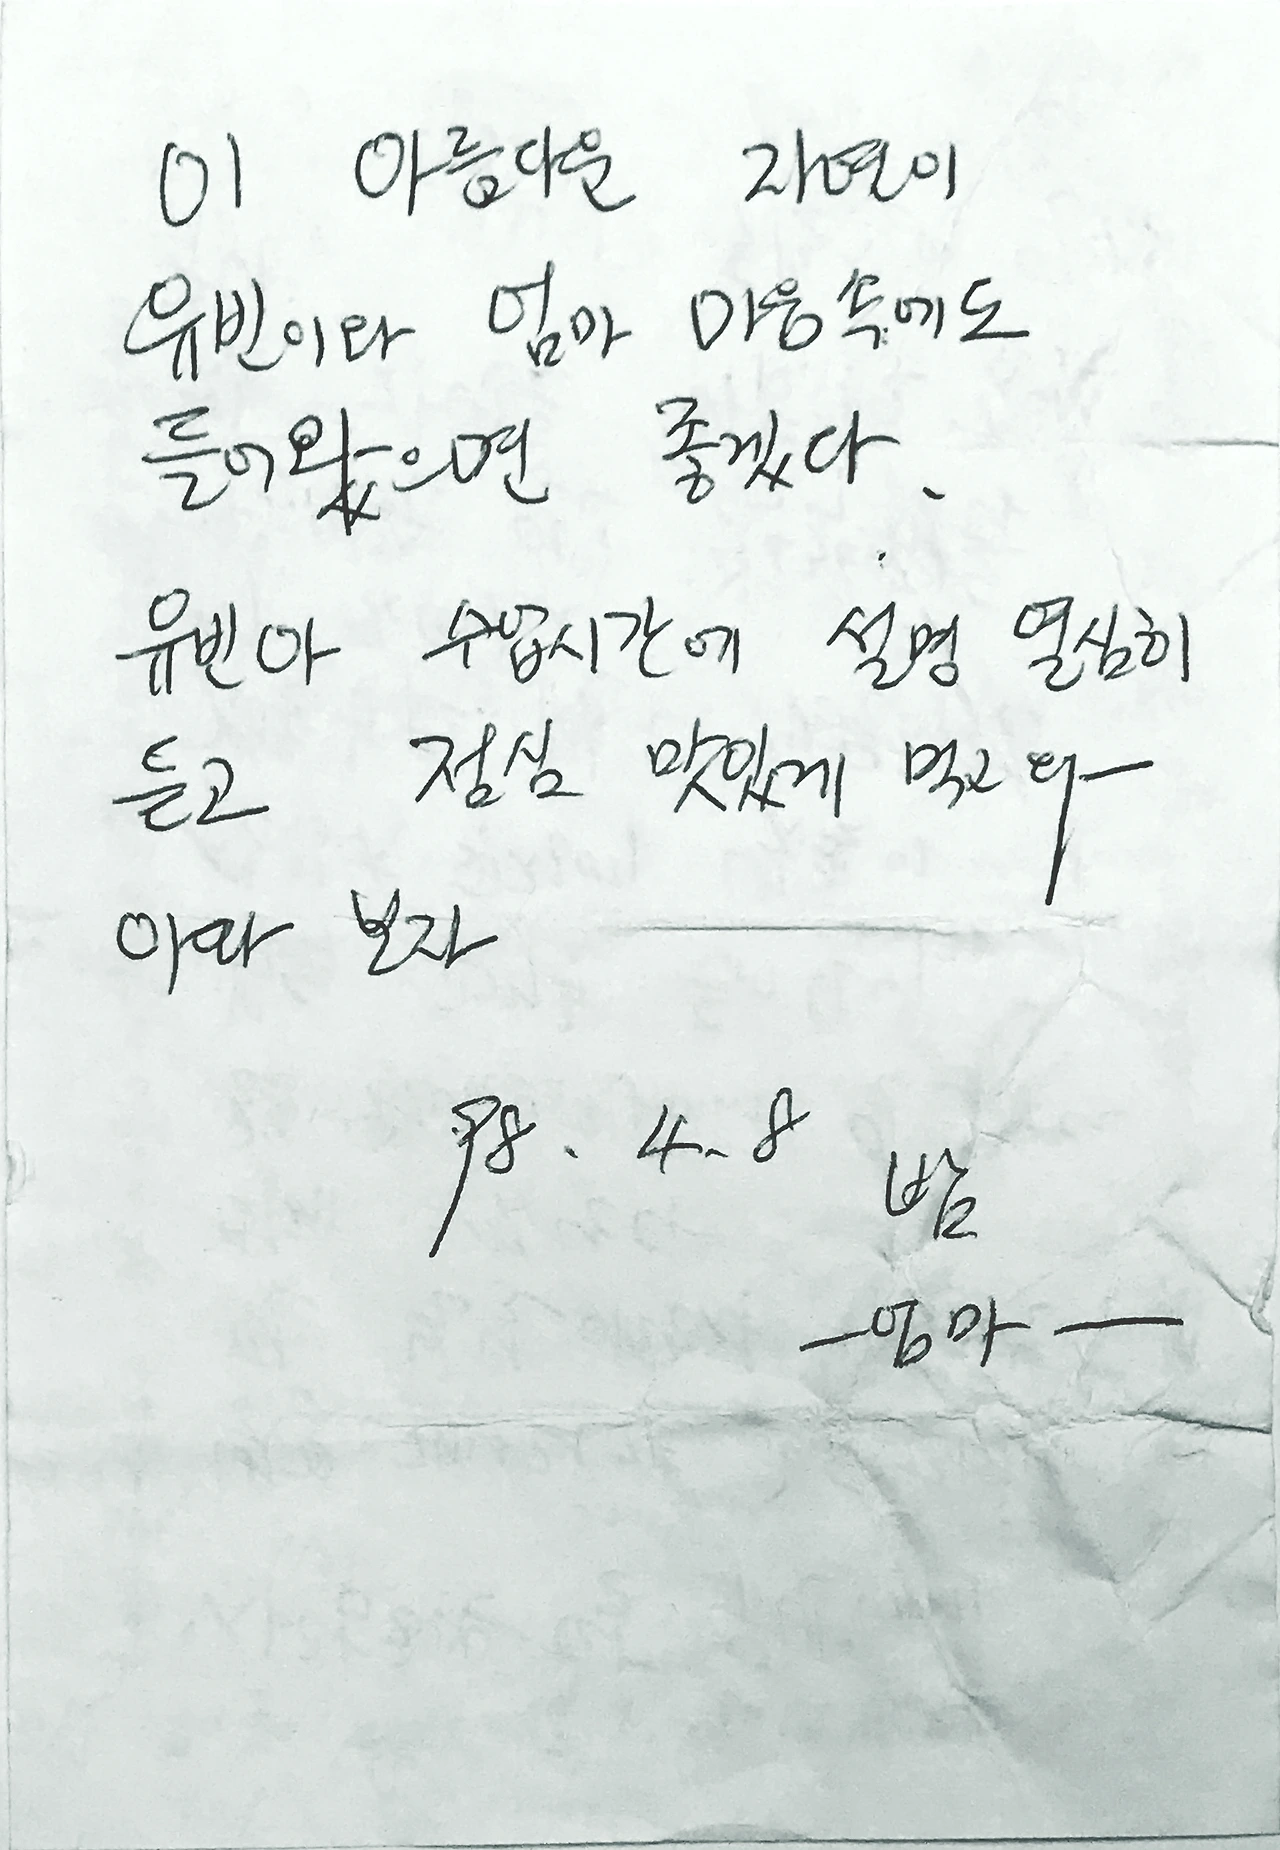 이 아름다운 자연이
유빈이와 엄마 마음속에도
들어왔으면 좋겠다.
유빈아 수업시간에 설명 열심히
듣고 점심 맛있게 먹고 와
이따 보자
98. 4. 8
밤
— 엄마 —